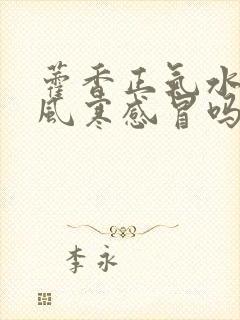 藿香正氣水
風寒感冒吗
李永